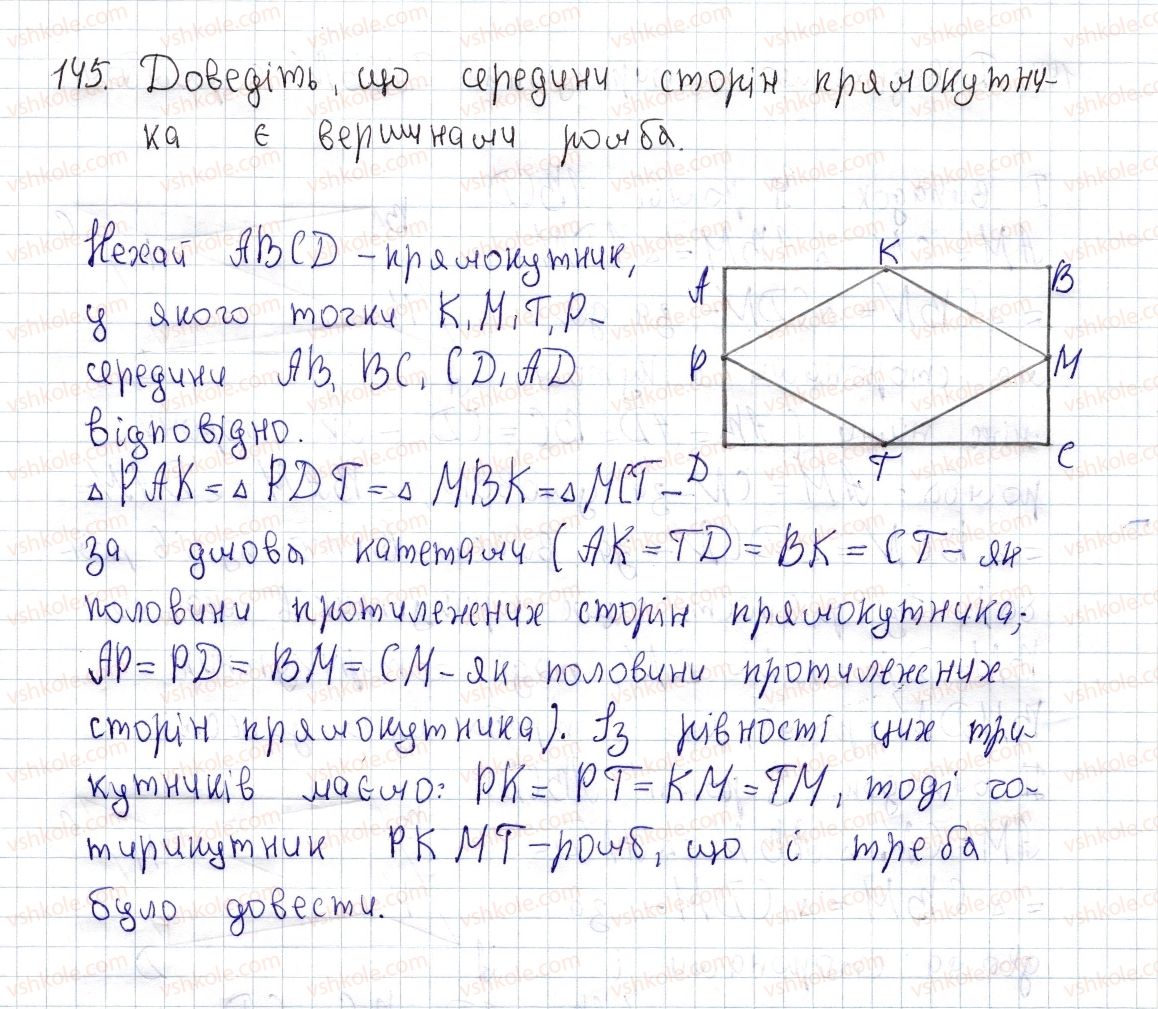 145. Доведіть, що середини сторін прямокутни-
ка є вершинами ромба.
Нехай ABCD – прямокутник,
у якого точки K, M, T, P –
середини AB, BC, CD, AD
відповідно.
△PAK = △PDT = △MBK = △MCT –
за двома катетами (AK = TD = BK = CT – як
половини протилежних сторін прямокутника;
AP = PD = BM = CM – як половини протилежних
сторін прямокутника). Із рівності цих три-
кутників маємо: PK = PT = KM = TM, тоді чо-
тирикутник PKMT – ромб, що і треба
було довести.
A K B
P M
D T C
vshkole.com